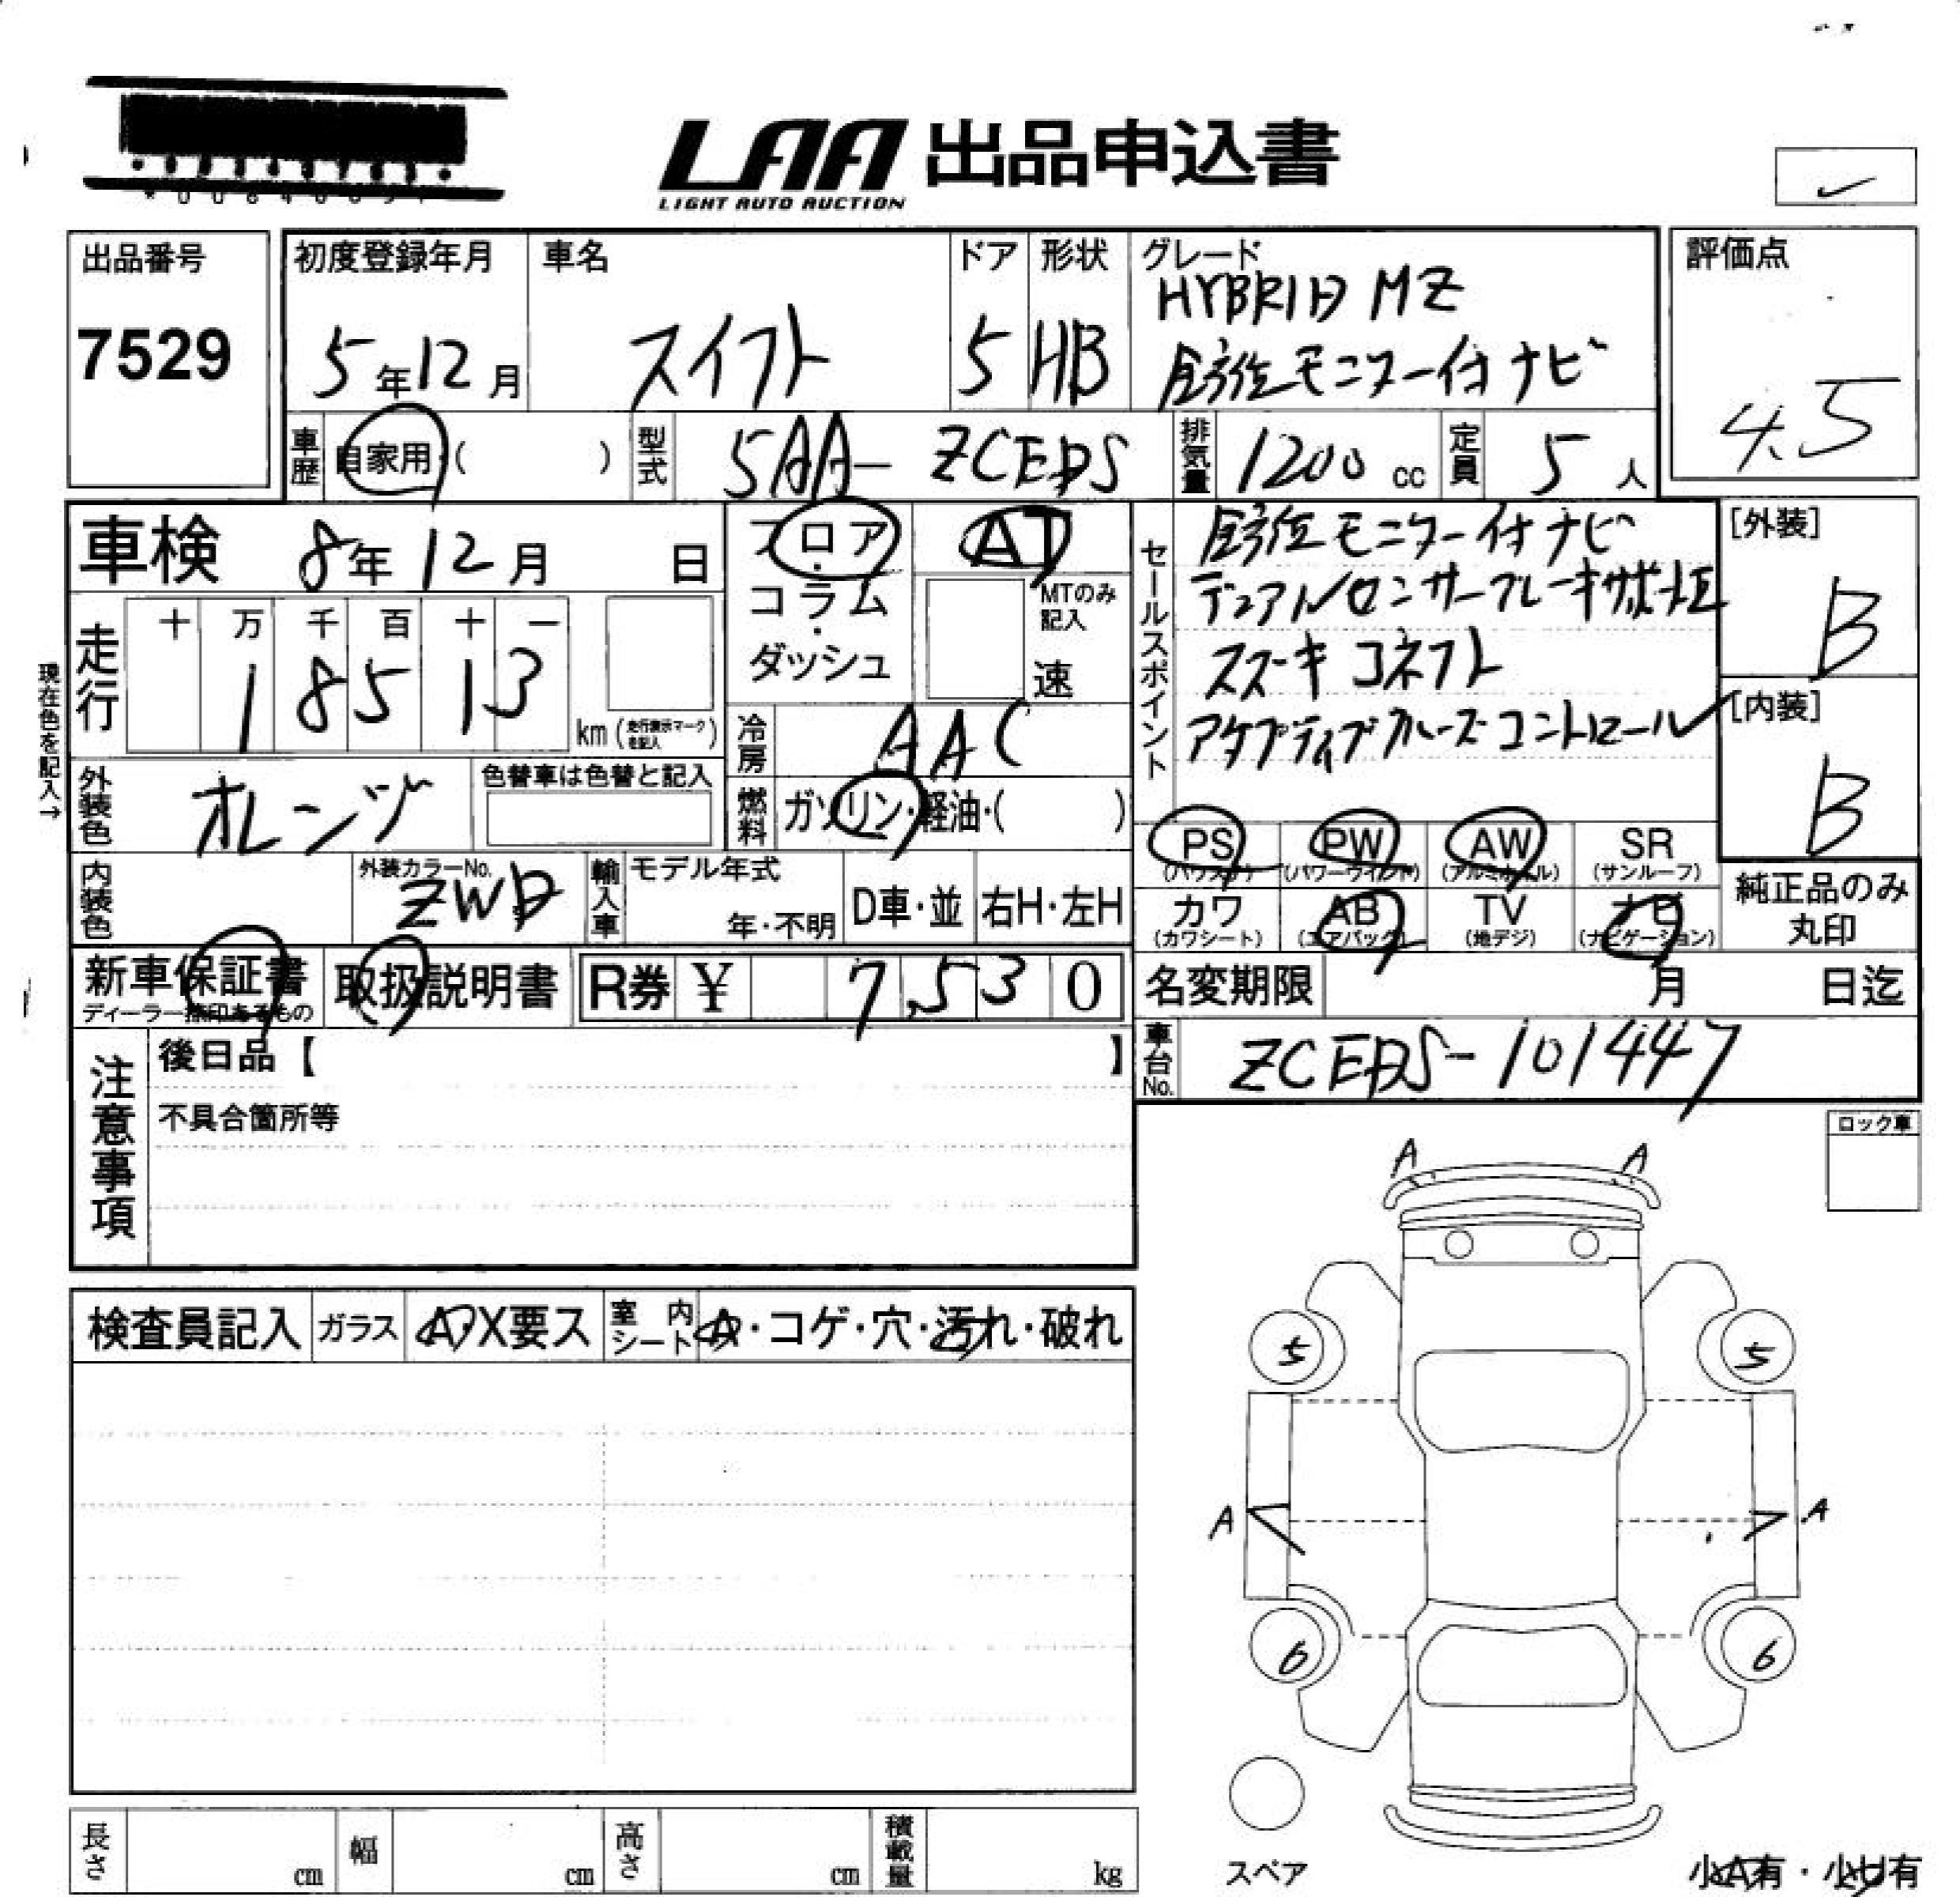 LAA 出品申込書
LIGHT AUTO AUCTION
出品番号
7529
初度登録年月
5年12月
車名
スイフト
ドア
5
形状
HB
グレード
HYBRID MZ
全方位モニター付ナビ
評価点
4.5
車歴
自家用・( )
型式
5AA-ZCEDS
排気量
1200 cc
定員
5人
車検 8年12月 日
フロア・コラム・ダッシュ
AT
MTのみ記入
速
セールスポイント
全方位モニター付ナビ
デュアルセンサーブレーキサポートⅡ
スズキコネクト
アダプティブクルーズコントロール
[外装]
B
[内装]
B
現在色を記入→
走行
十 万 千 百 十 一
1 8 5 1 3
km(走行表示マークを記入)
冷房
AAC
外装色
オレンジ
色替車は色替と記入
燃料
ガソリン・軽油・( )
内装色
外装カラーNo.
ZWD
輸入車
モデル年式
年・不明
D車・並
右H・左H
PS
(パワステ)
PW
(パワーウインド)
AW
(アルミホイル)
SR
(サンルーフ)
カワ
(カワシート)
AB
(エアバック)
TV
(地デジ)
ナビ
(ナビゲーション)
純正品のみ
丸印
新車保証書
ディーラー捺印あるもの
取扱説明書
R券 ¥ 7,530
名変期限 月 日迄
注意事項
後日品【 】
不具合箇所等
車台No.
ZCEDS-101447
ロック車
A A
検査員記入
ガラス
A・X要ス
室内シート
A・コゲ・穴・汚れ・破れ
5 5
A A
6 6
スペア
小A有・小U有
長さ cm
幅 cm
高さ cm
積載量 kg